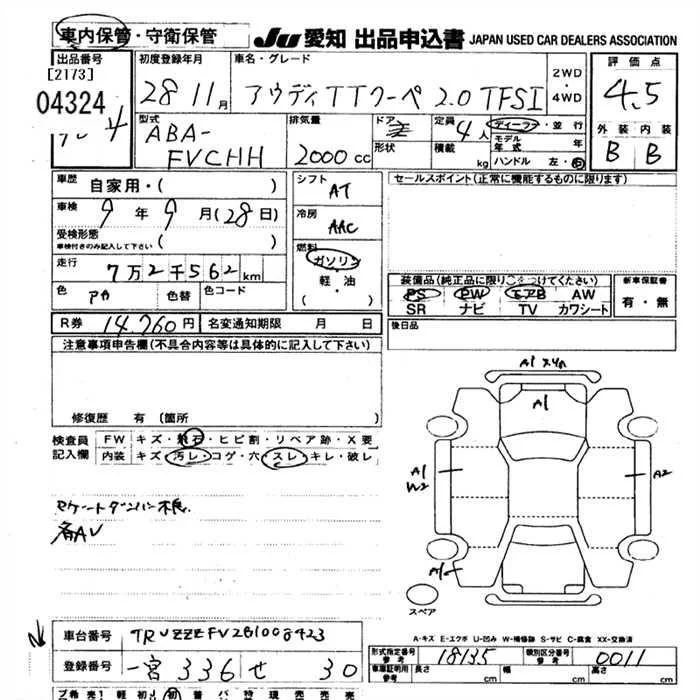 車内保管・守衛保管 JU 愛知 出品申込書 JAPAN USED CAR DEALERS ASSOCIATION
出品番号 初度登録年月 車名・グレード 2WD・4WD 評価点
[2173]
04324 28 11月 アウディTTクーペ 2.0 TFSI 4.5
型式 排気量 ドア 定員 4人 ディーラー・並行 外装 内装
ABA-FVCHH 2000cc 形状 積載 kg モデル年式 年 B B
ハンドル 左・右
車歴 自家用・( ) シフト AT セールスポイント(正常に機能するものに限ります)
車検 9年9月(28日) 冷房 AAC
受検形態 ( )
車検付きのみ記入して下さい
燃料 ガソリン 軽・油
走行 7万2千562km
装備品(純正品に限り○をつけてください) 新車保証書
色 アカ 色替 色コード PS PW エアB AW 有・無
SR ナビ TV カワシート
R券 14,760円 名変通知期限 月 日 後日品
注意事項申告欄(不具合内容等は具体的に記入して下さい)
修復歴 有(箇所
A1
A1
A1
W2
A2
A1
検査員 FW キズ・飛石・ヒビ割・リペア跡・X要
記入欄 内装 キズ・汚レ・コゲ・穴・スレ・キレ・破レ
各AV
スペア
A-キズ E-エクボ U-凹み W-補修跡 S-サビ C-腐食 XX-交換済
車台番号 TRUZZZFV2G1008423
型式指定番号 参考 18135 類別区分番号 参考 0011
登録番号 一宮 336 せ 30
車庫証明用 参考 長さ cm 幅 cm 高さ cm